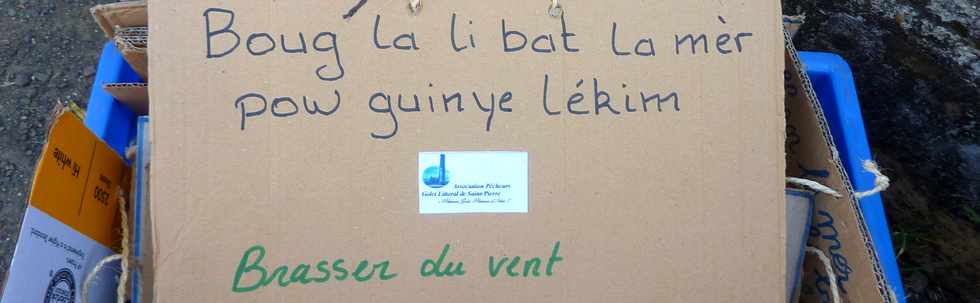 Boug la li bat la mèr
pow guinye lékim
Association Pêcheurs
Golet Littoral de Saint-Pierre
Brasser du vent
Hi white
2500